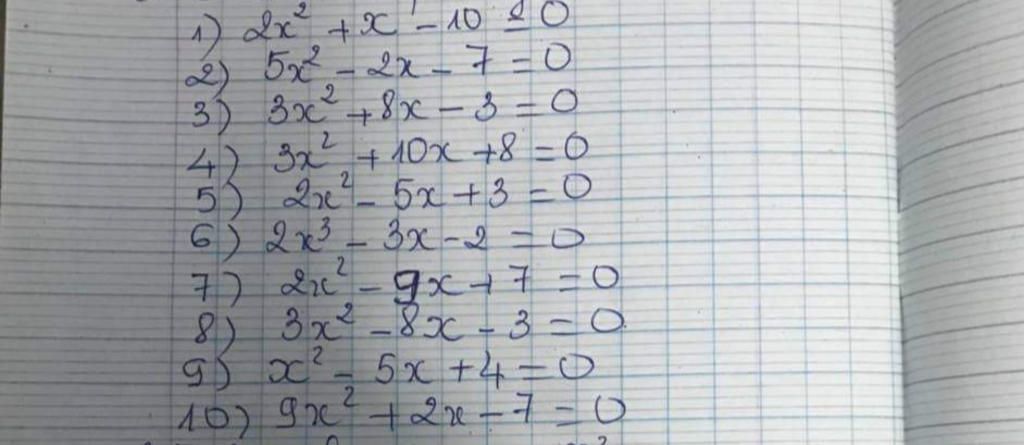 1) 2x² + x - 10 = 0
2) 5x² - 2x - 7 = 0
3) 3x² + 8x - 3 = 0
4) 3x² + 10x + 8 = 0
5) 2x² - 5x + 3 = 0
6) 2x³ - 3x - 2 = 0
7) 2x² - 9x + 7 = 0
8) 3x² - 8x - 3 = 0
9) x² - 5x + 4 = 0
10) 9x² + 2x - 7 = 0